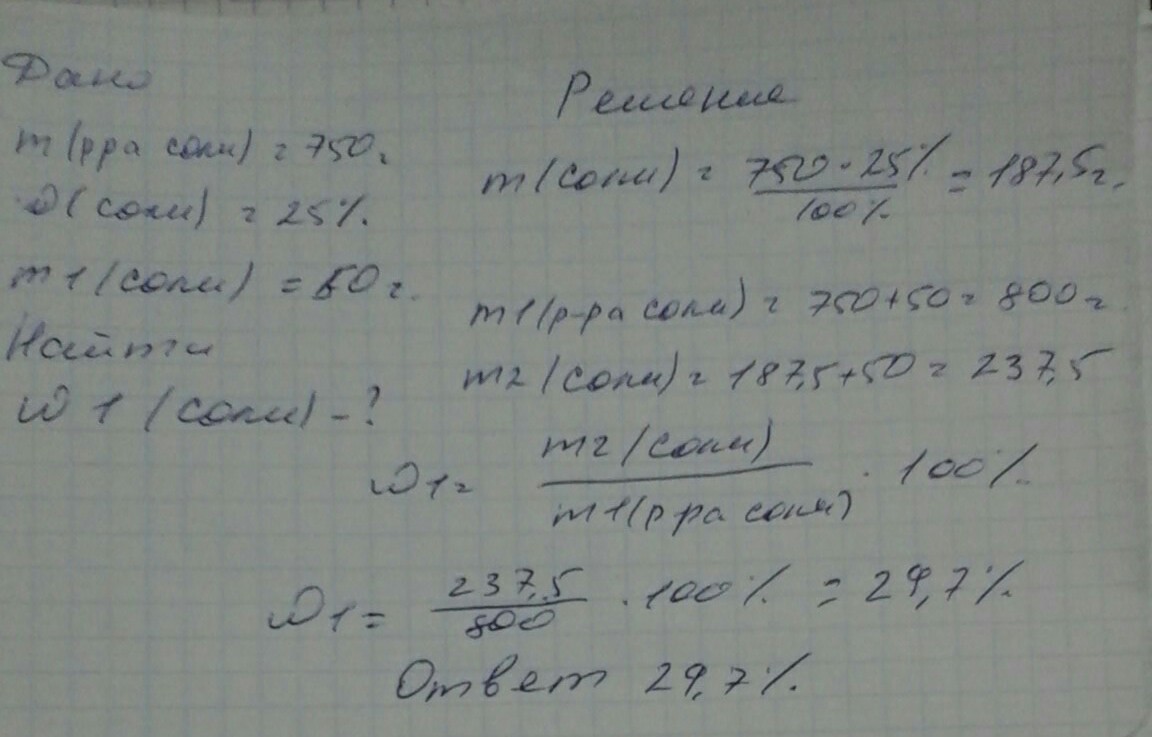 Дано
m(рра соли) = 750г
ω(соли) = 25%.
m1(соли) = 50г.
Найти
ω1(соли) - ?
Решение
m(соли) = 750·25% / 100% = 187,5г.
m1(р-ра соли) = 750+50 = 800г
m2(соли) = 187,5+50 = 237,5
ω1 = m2(соли) / m1(рра соли) · 100%.
ω1 = 237,5 / 800 · 100% = 29,7%.
Ответ 29,7%.